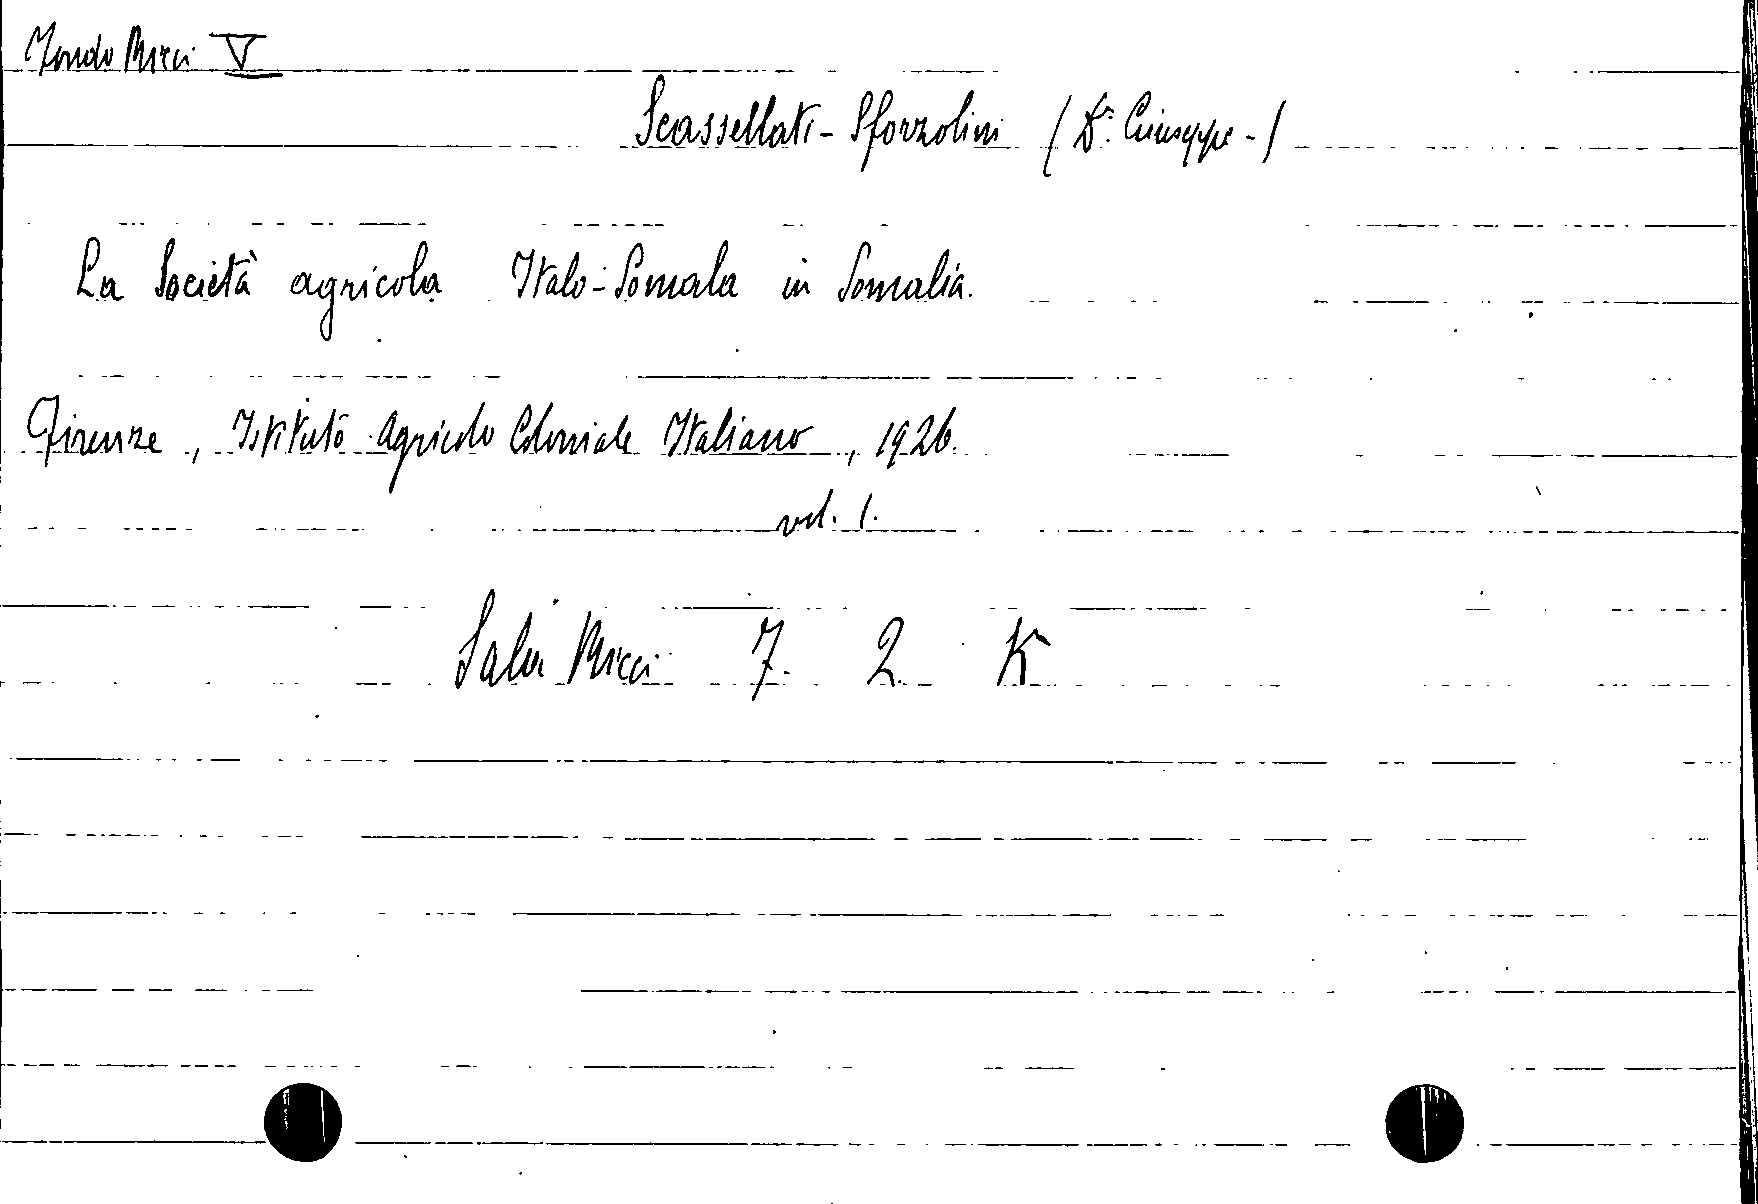 Fondo Ricci V
Scassellati-Sforzolini (Dr. Giuseppe-)
La Società agricola Italo-Somala in Somalia.
Firenze, Istituto Agricolo Coloniale Italiano, 1926.
vol. 1.
Sala Ricci 7. 2. K